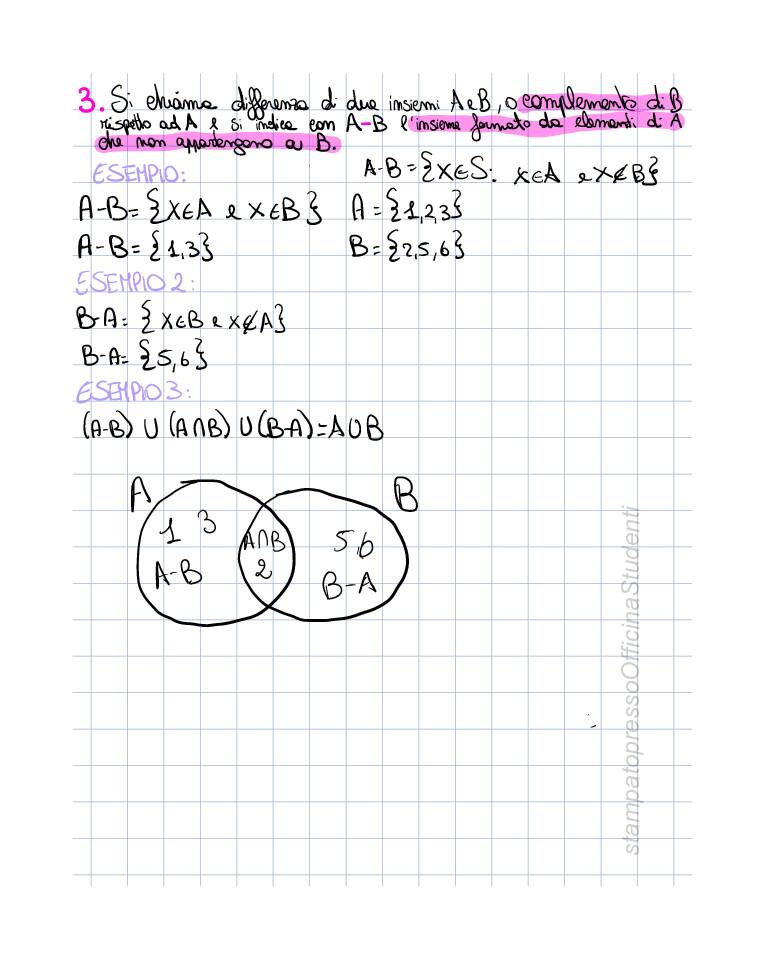 3. Si chiama differenza di due insiemi A e B, o complemento di B
rispetto ad A e si indica con A-B l'insieme formato da elementi di A
che non appartengono a B.
ESEMPIO:
A-B = {X∈S: X∈A e X∉B}
A-B = {X∈A e X∈B}
A = {1,2,3}
A-B = {1,3}
B = {2,5,6}
ESEMPIO 2:
B-A = {X∈B e X∉A}
B-A = {5,6}
ESEMPIO 3:
(A-B) ∪ (A∩B) ∪ (B-A) = A∪B
A
B
1 3
A∩B
5,6
A-B
2
B-A
stampatopressoOfficinaStudenti